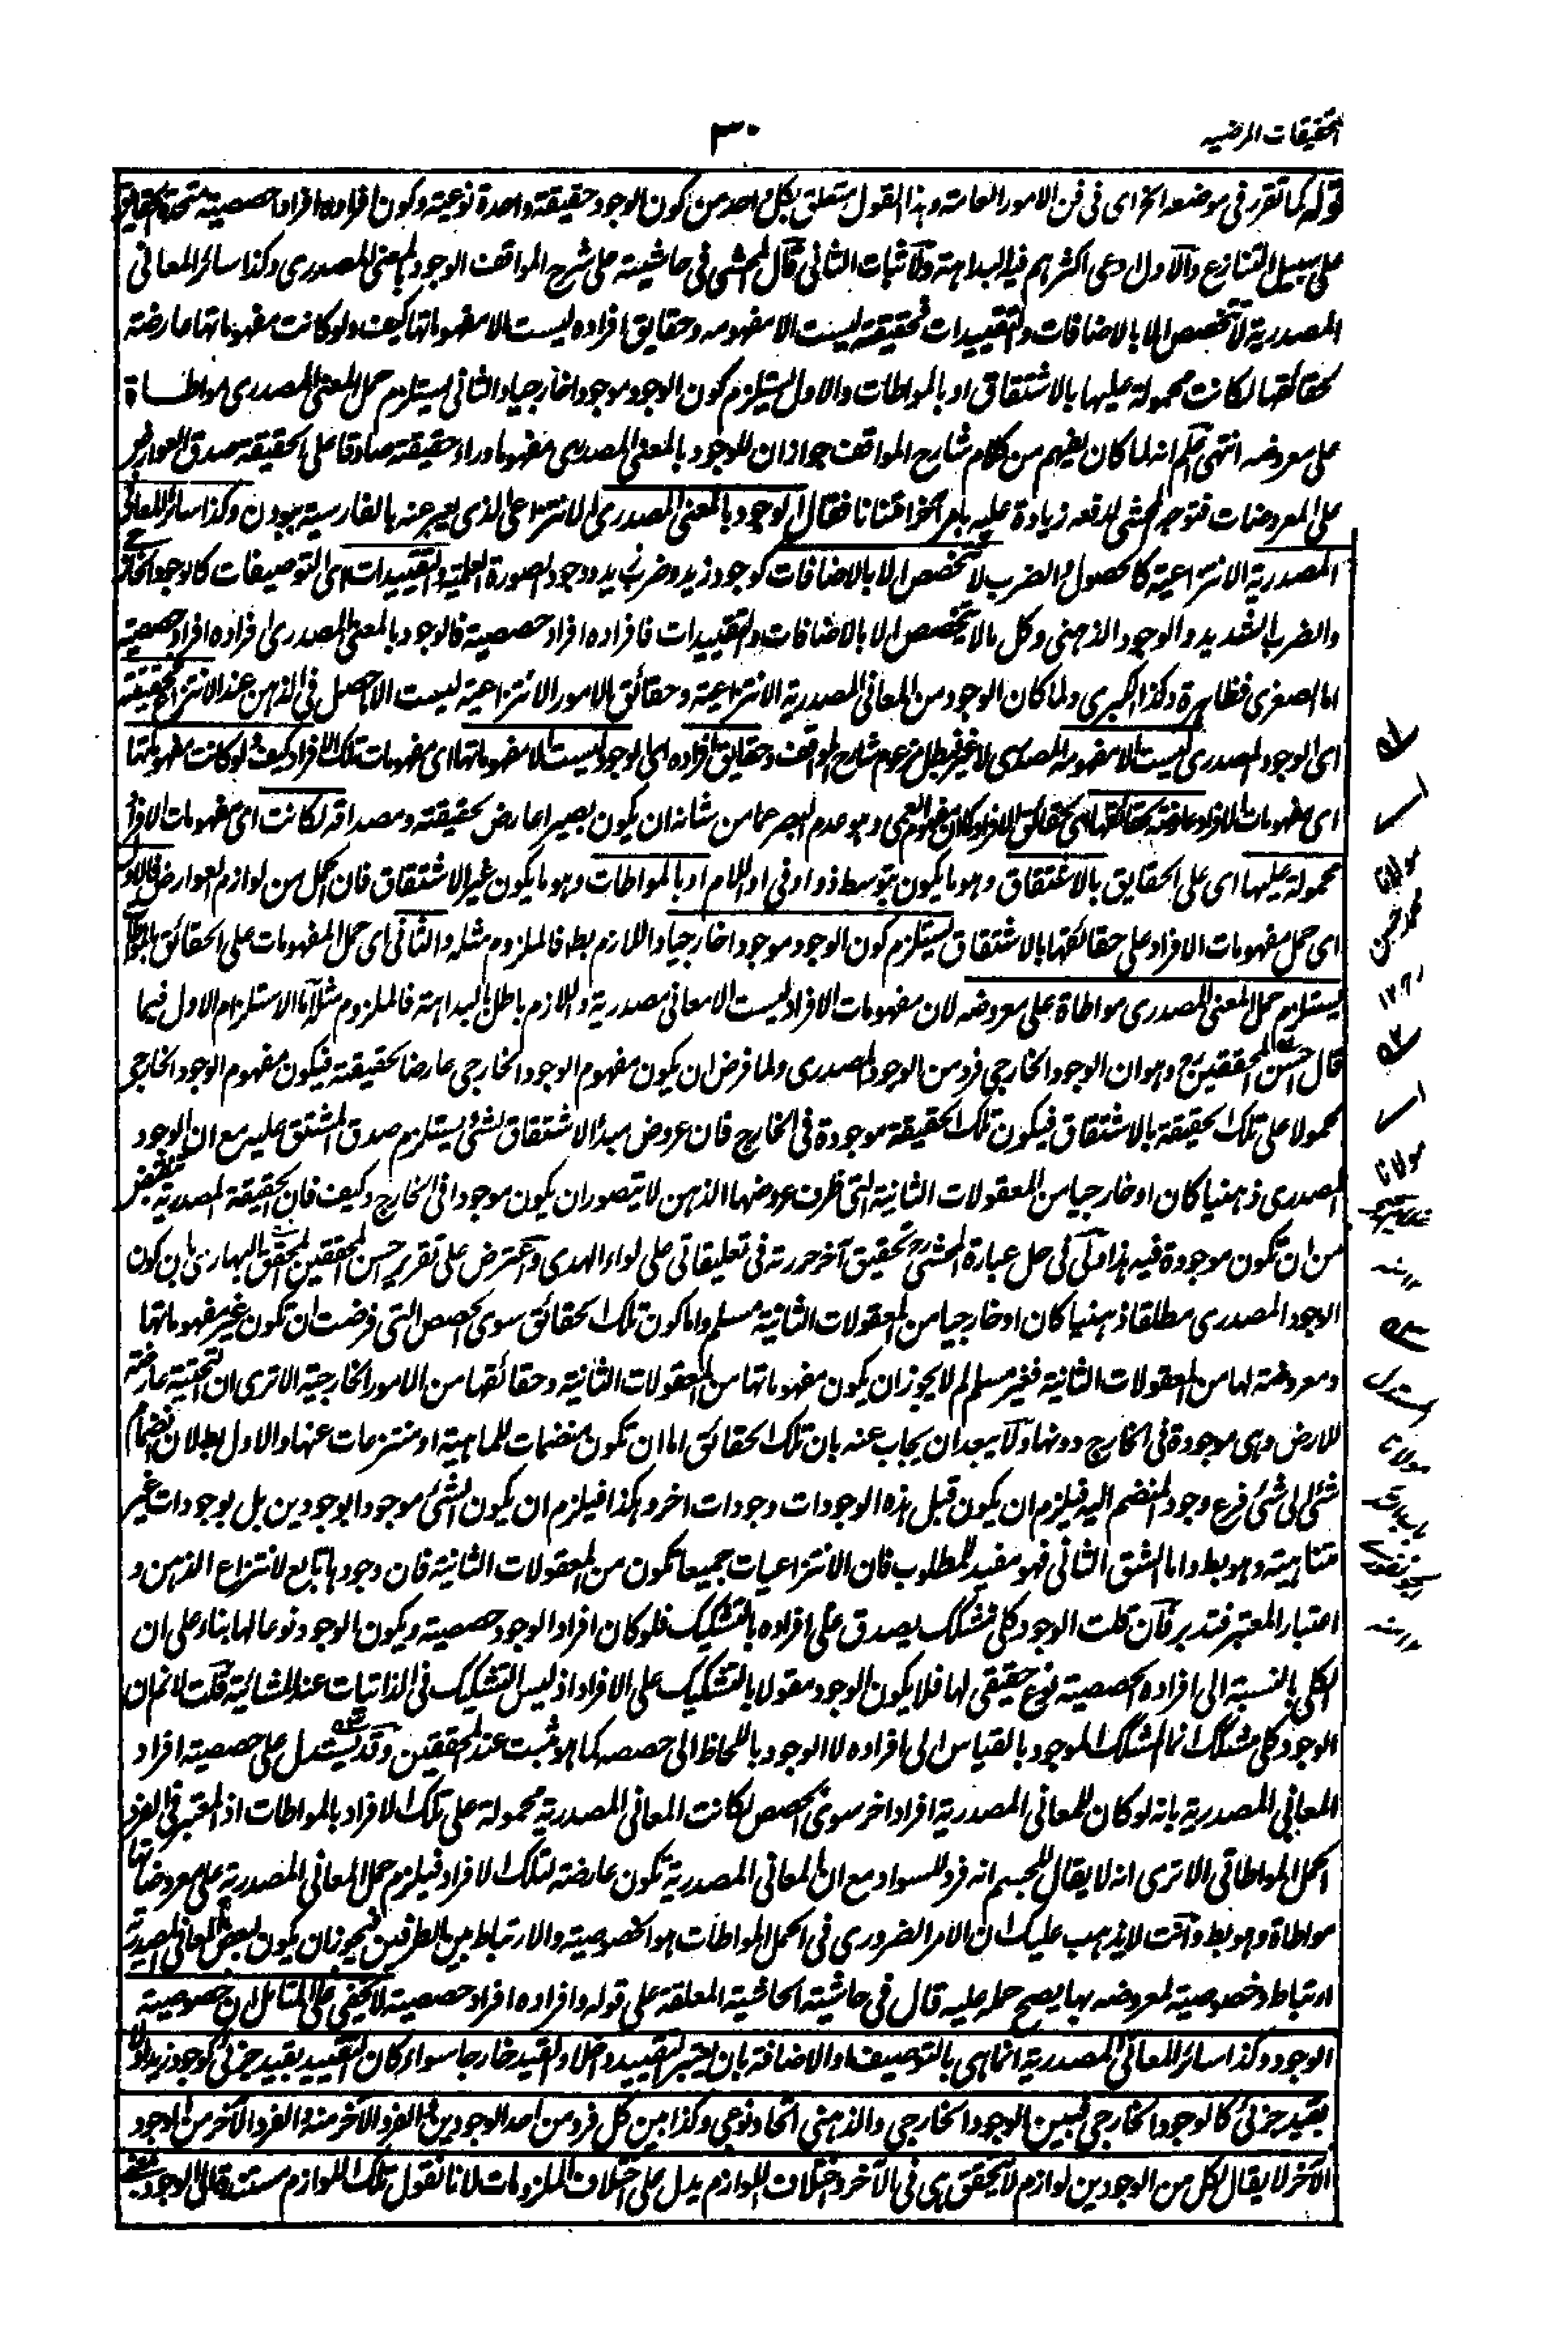 التحقيقات المرضيه
٣٠
قوله كما تقرر فى موضعه الخ اى فى فن الامور العامة وهذا القول متعلق بكل واحد من كون الوجود حقيقة واحدة نوعية وكون افراده افرادا حصصية متحدة الحقايق
على سبيل التنازع والاول ادعى اكثرهم فيه البداهة ولاثبات الثانى قال المحشى فى حاشيته على شرح المواقف الوجود بالمعنى المصدرى وكذا سائر المعانى
المصدرية لا تتخصص الا بالاضافات والتقييدات فحقيقته ليست الا مفهومه وحقايق افراده ليست الا مفهوماتها كيف ولو كانت مفهوماتها عارضة
لحقائقها لكانت محمولة عليها بالاشتقاق او بالمواطات والاول يستلزم كون الوجود موجودا خارجيا والثانى يستلزم حمل المعنى المصدرى مواطاة
على معروضه انتهى اعلم انه لما كان يفهم من كلام شارح المواقف جواز ان للوجود بالمعنى المصدرى مفهوما وراء حقيقته صادقا على الحقيقة صدق العوارض
على المعروضات فتوجه المحشى لدفعه زيادة عليه بامر آخر افتنانا فقال الوجود بالمعنى المصدرى الانتزاعى الذى يعبر عنه بالفارسية ببودن وكذا سائر المعانى
المصدرية الانتزاعية كالحصول والضرب لا تتخصص الا بالاضافات كوجود زيد وضرب زيد ووجود الصورة العلمية والتقييدات اى التوصيفات كالوجود الخارجى
والضرب الشديد والوجود الذهنى وكل ما لا يتخصص الا بالاضافات والتقييدات فافراده افراد حصصية فالوجود بالمعنى المصدرى افراده افراد حصصية
اما الصغرى فظاهرة وكذا الكبرى ولما كان الوجود من المعانى المصدرية الانتزاعية وحقائق الامور الانتزاعية ليست الا ما حصل فى الذهن عند الانتزاع فحقيقته
اى الوجود المصدرى ليست الا مفهومه المصدرى لا غير فبطل مزعوم شارح المواقف وحقايق افراده اى الوجود ليست الا مفهوماتها اى مفهومات تلك الافراد كيف ولو كانت مفهوماتها
اى مفهومات الافراد عارضة لحقائقها اى حقائق الافراد كان مفهوم العمى وهو عدم البصر عما من شانه ان يكون بصيرا عارض لحقيقته ومصداقه لكانت اى مفهومات الافراد
محمولة عليها اى على الحقايق بالاشتقاق وهو ما يكون بتوسط ذو او فى او اللام او بالمواطات وهو ما يكون غير الاشتقاق فان الحمل من لوازم العوارض فالاول
اى حمل مفهومات الافراد على حقائقها بالاشتقاق يستلزم كون الوجود موجودا خارجيا واللازم بط فالملزوم مثله والثانى اى حمل المفهومات على الحقائق بالمواطاة
يستلزم حمل المعنى المصدرى مواطاة على معروضه لان مفهومات الافراد ليست الا معانى مصدرية واللازم باطل بالبداهة فالملزوم مثله اما الاستلزام الاول فبما
قال احسن المحققين رح وهو ان الوجود الخارجى فرد من الوجود المصدرى ولما فرض ان يكون مفهوم الوجود الخارجى عارضا لحقيقته فيكون مفهوم الوجود الخارجى
محمولا على تلك الحقيقة بالاشتقاق فيكون تلك الحقيقة موجودة فى الخارج فان عروض مبدأ الاشتقاق لشئ يستلزم صدق المشتق عليه مع ان الوجود
المصدرى ذهنيا كان او خارجيا من المعقولات الثانية التى ظرف عروضها الذهن لا يتصور ان يكون موجودا فى الخارج وكيف فان الحقيقة المصدرية
من ان تكون موجودة فيه هذا ولى فى حل عبارة المحشى رح تحقيق آخر حررته فى تعليقاتى على لواء الهدى واعترض على تقرير احسن المحققين المحقق البهارى بان كون
الوجود المصدرى مطلقا ذهنيا كان او خارجيا من المعقولات الثانية مسلم واما كون تلك الحقائق سوى الحصص التى فرضت ان تكون غير مفهوماتها
ومعروضة لها من المعقولات الثانية فغير مسلم لم لا يجوز ان يكون مفهوماتها من المعقولات الثانية وحقائقها من الامور الخارجية الا ترى ان التحتية عارضة
للارض وهى موجودة فى الخارج دونها ولا يبعد ان يجاب عنه بان تلك الحقائق اما ان تكون منضمات للماهية او منتزعات عنها والاول بطلان انضمام
شئ الى شئ فرع وجود المنضم اليه فيلزم ان يكون قبل هذه الوجودات وجودات اخر وهكذا فيلزم ان يكون الشئ موجودا بوجودين بل بوجودات غير
متناهية وهو بط واما الشق الثانى فهو مفيد للمطلوب فان الانتزاعيات جميعا تكون من المعقولات الثانية فان وجودها تابع لانتزاع الذهن و
اعتبار المعتبر فتدبر فان قلت الوجود كلى مشكك يصدق على افراده بالتشكيك فلو كان افراد الوجود حصصية ويكون الوجود نوعا لها بناء على ان
الكلى بالنسبة الى افراده الحصصية نوع حقيقى لها فلا يكون الوجود مقولا بالتشكيك على الافراد اذ ليس التشكيك فى الذاتيات عند المشائية قلت لا نم ان
الوجود كلى مشكك انما المشكك الموجود بالقياس الى افراده لا الوجود باللحاظ الى حصصه كما هو مثبت عند المحققين وقد يستدل على حصصية افراد
المعانى المصدرية بانه لو كان للمعانى المصدرية افراد اخر سوى الحصص لكانت المعانى المصدرية محمولة على تلك الافراد بالمواطات اذ المعتبر فى الفرد
الحمل المواطاتى الا ترى انه لا يقال للجسم انه فرد للسواد مع ان المعانى المصدرية تكون عارضة لتلك الافراد فيلزم حمل المعانى المصدرية على معروضاتها
مواطاة وهو بط وانت لا يذهب عليك ان الامر الضرورى فى الحمل المواطات هو الخصوصية والارتباط بين الطرفين فيجوز ان يكون لبعض المعانى المصدرية
ارتباط وخصوصية لمعروضه بها يصح حمله عليه قال فى حاشية الحاشية المعلقة على قوله وافراده افراد حصصية لا يخفى على المتامل ان خصوصية
الوجود وكذا سائر المعانى المصدرية انما هى بالتوصيف او الاضافة بان يعتبر التقييد داخلا والقيد خارجا سواء كان التقييد بقيد جزئى كوجود زيد او
بقيد جزئى كالوجود الخارجى فبين الوجود الخارجى والذهنى اتحاد نوعى وكذا بين كل فرد من احد الوجودين الفرد الآخر منه والفرد الآخر من الوجود
الآخر لا يقال لكل من الوجودين لوازم لا يتحقق هى فى الآخر واختلاف اللوازم يدل على اختلاف الملزومات لانا نقول تلك اللوازم مستندة الى الوجود
مولانا
محمد حسن
مولانا
منه
استدل
مولانا
منه